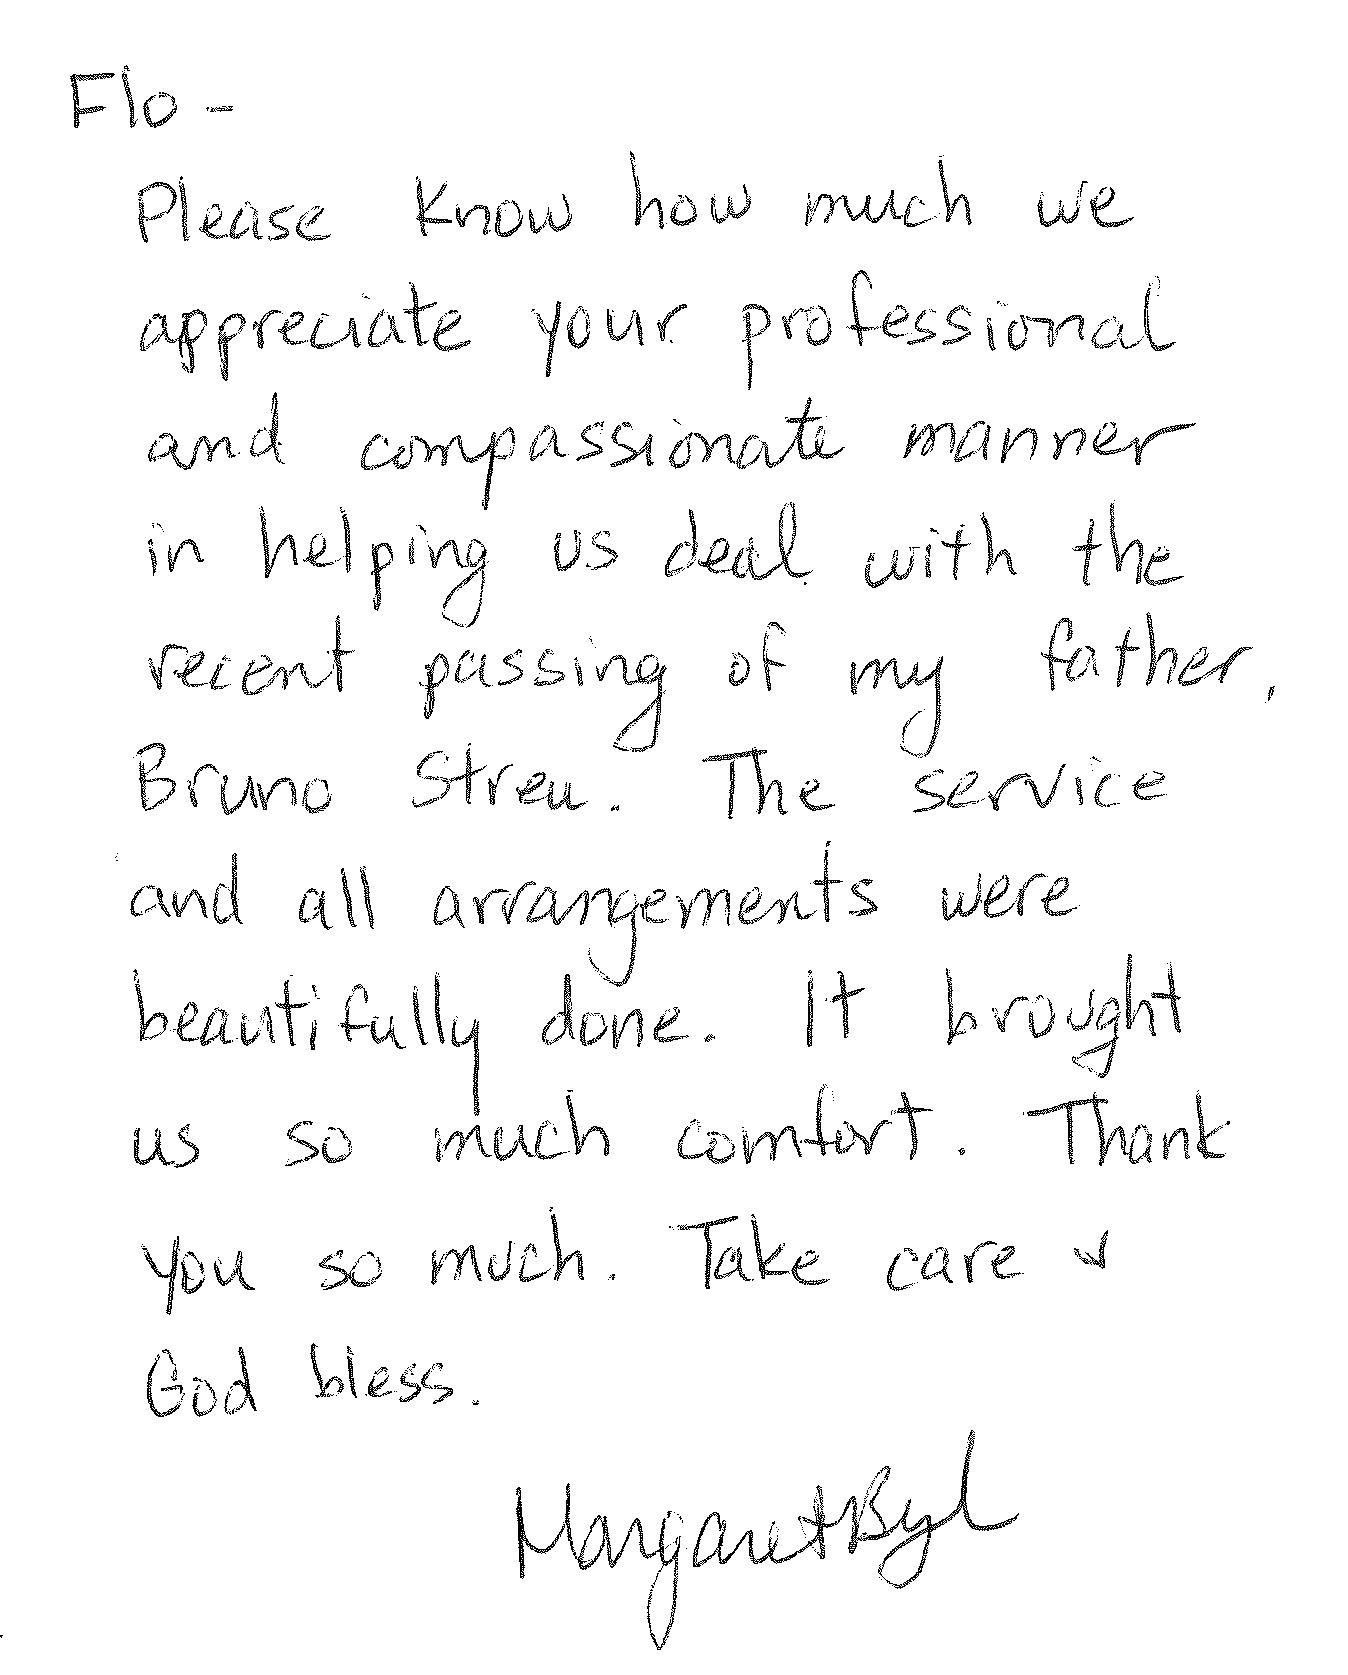 Flo -
Please know how much we
appreciate your professional
and compassionate manner
in helping us deal with the
recent passing of my father,
Bruno Streu. The service
and all arrangements were
beautifully done. It brought
us so much comfort. Thank
you so much. Take care
God bless.
Margaret Byl